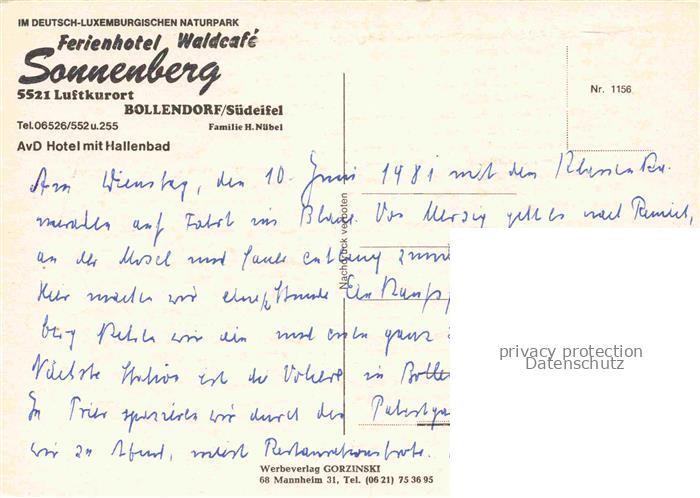 IM DEUTSCH-LUXEMBURGISCHEN NATURPARK
Ferienhotel Waldcafé
Sonnenberg
5521 Luftkurort
BOLLENDORF/Südeifel
Tel. 06526/552 u. 255
Familie H. Nübel
AvD Hotel mit Hallenbad
Nr. 1156
Am Dienstag, den 10. Juni 1981 mit den Klassenka-
meraden auf Fahrt ins Blaue. Von Merzig geht es nach Remich,
an der Mosel und Sauer entlang
Hier machen wir eine Stunde
berg kehren wir ein und essen ganz
Nächste Station ist die in
In Trier spazieren wir durch den
wir zu Abend, meist Restaurationsbrote.
Nachdruck verboten
privacy protection
Datenschutz
Werbeverlag GORZINSKI
68 Mannheim 31, Tel. (06 21) 75 36 95